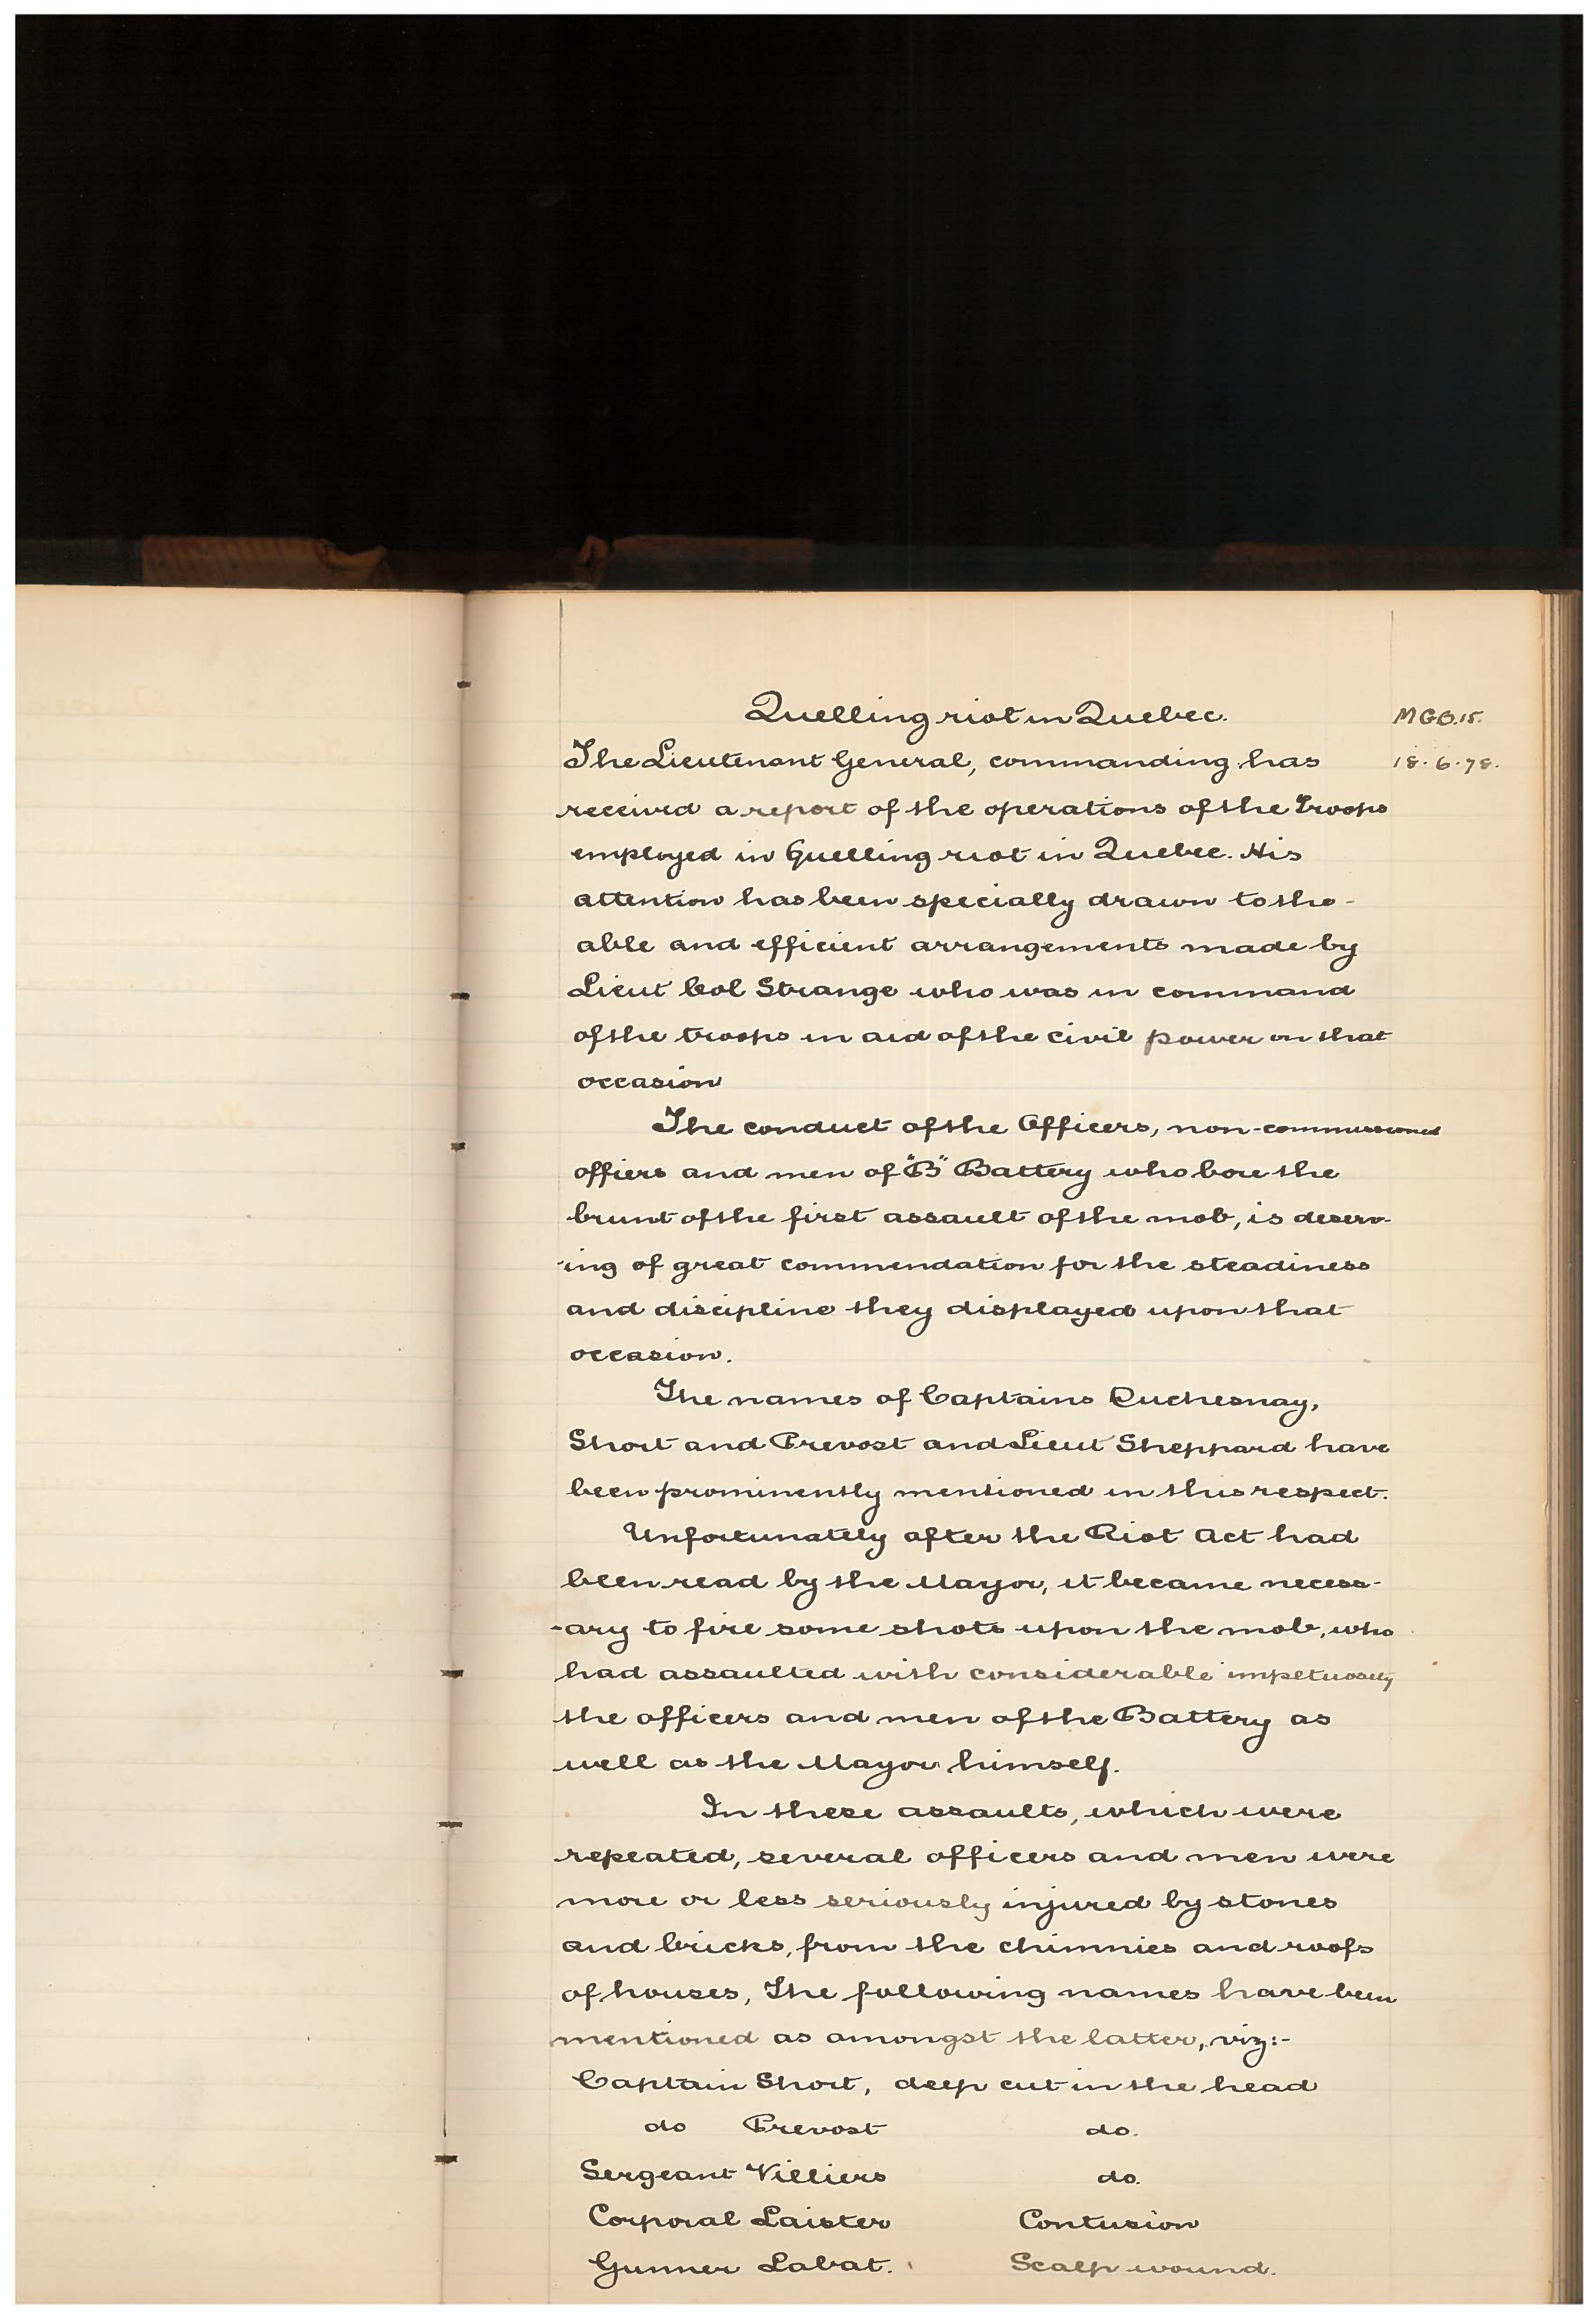 Quelling riot in Quebec.
MGO.15.
The Lieutenant General, commanding has
18.6.78.
received a report of the operations of the Troops
employed in Quelling riot in Quebec. His
attention has been specially drawn to the -
able and efficient arrangements made by
Lieut Col Strange who was in command
of the troops in aid of the civil power on that
occasion
The conduct of the Officers, non-commissioned
offiers and men of "B" Battery who bore the
brunt of the first assault of the mob, is deserv-
-ing of great commendation for the steadiness
and discipline they displayed upon that
occasion.
The names of Captains Duchesnay,
Short and Prevost and Lieut Sheppard have
been prominently mentioned in this respect.
Unfortunately after the Riot Act had
been read by the Mayor, it became necess-
-ary to fire some shots upon the mob, who
had assaulted with considerable impetuosity
the officers and men of the Battery as
well as the Mayor himself.
In these assaults, which were
repeated, several officers and men were
more or less seriously injured by stones
and bricks, from the chimnies and roofs
of houses, The following names have been
mentioned as amongst the latter, viz:-
Captain Short, deep cut in the head
do Prevost do.
Sergeant Villiers do.
Corporal Laister Contusion
Gunner Labat. Scalp wound.